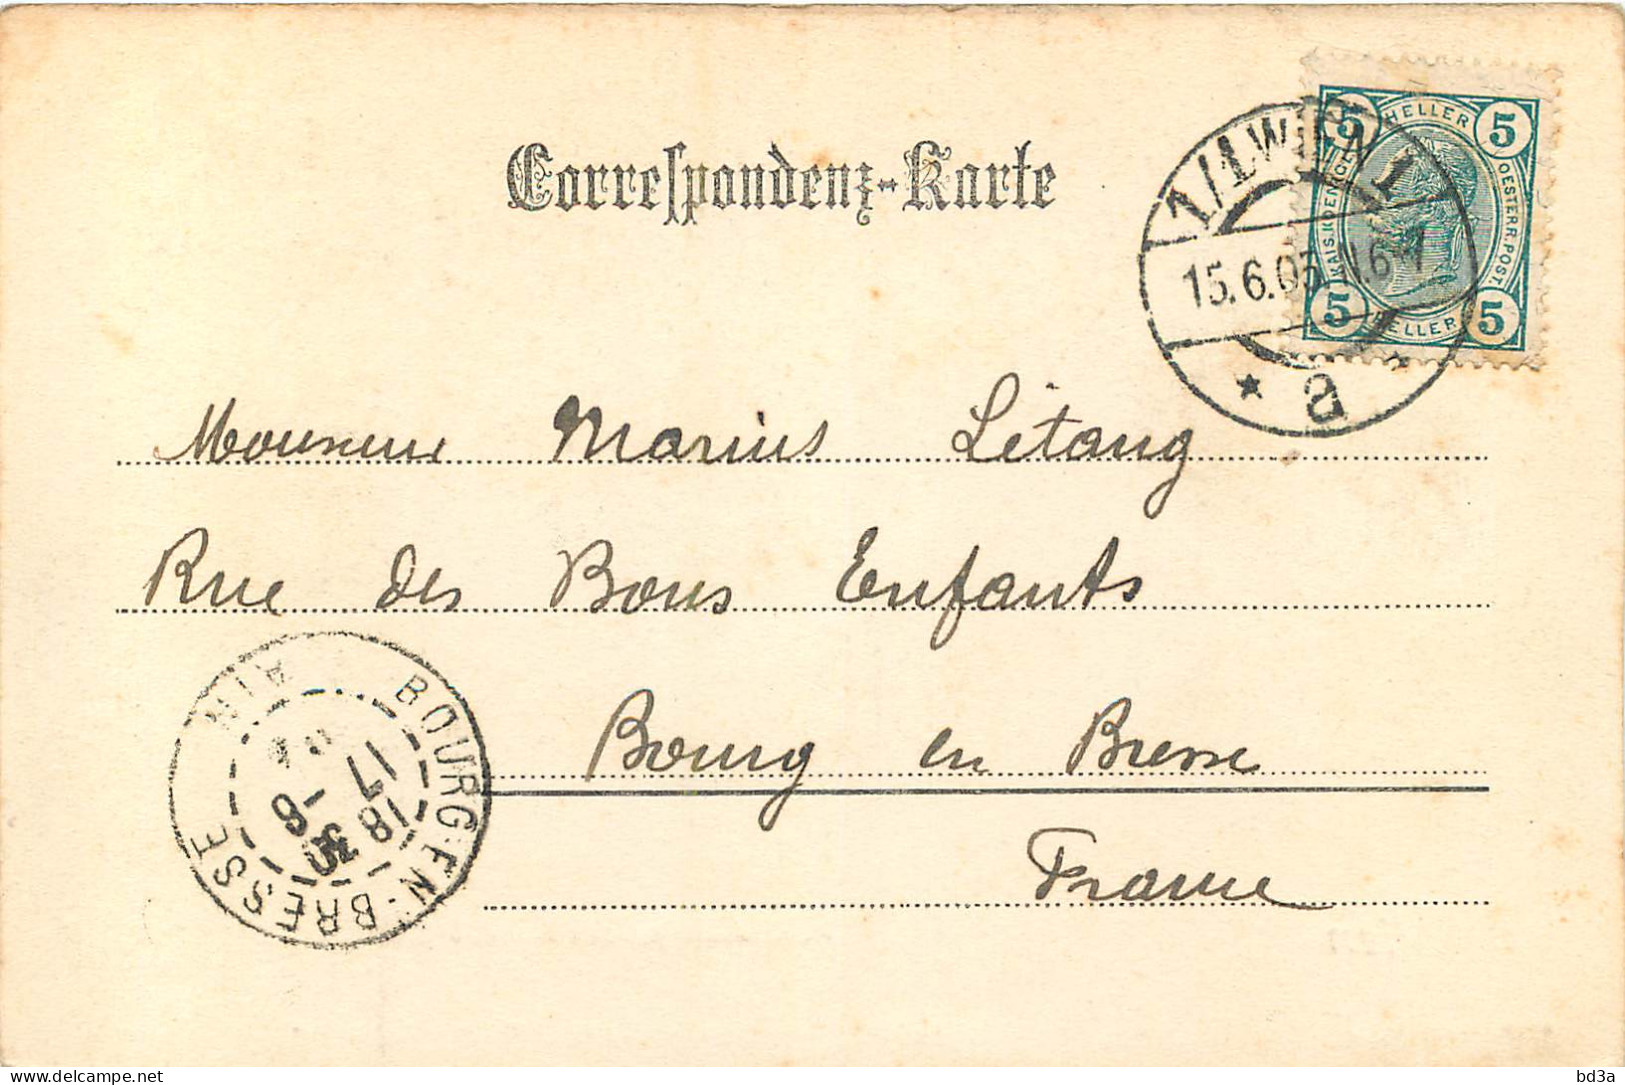 Correspondenz-Karte
5 HELLER 5
KAIS. KOENIGL. OESTERR. POST.
5 HELLER 5
1/1 WIEN 1
15.6.05 N.6-7
* a *
Monsieur Marius Létang
Rue des Bons Enfants
Bourg en Bresse
France
BOURG-EN-BRESSE AIN
18 30
17 -6
bd3a